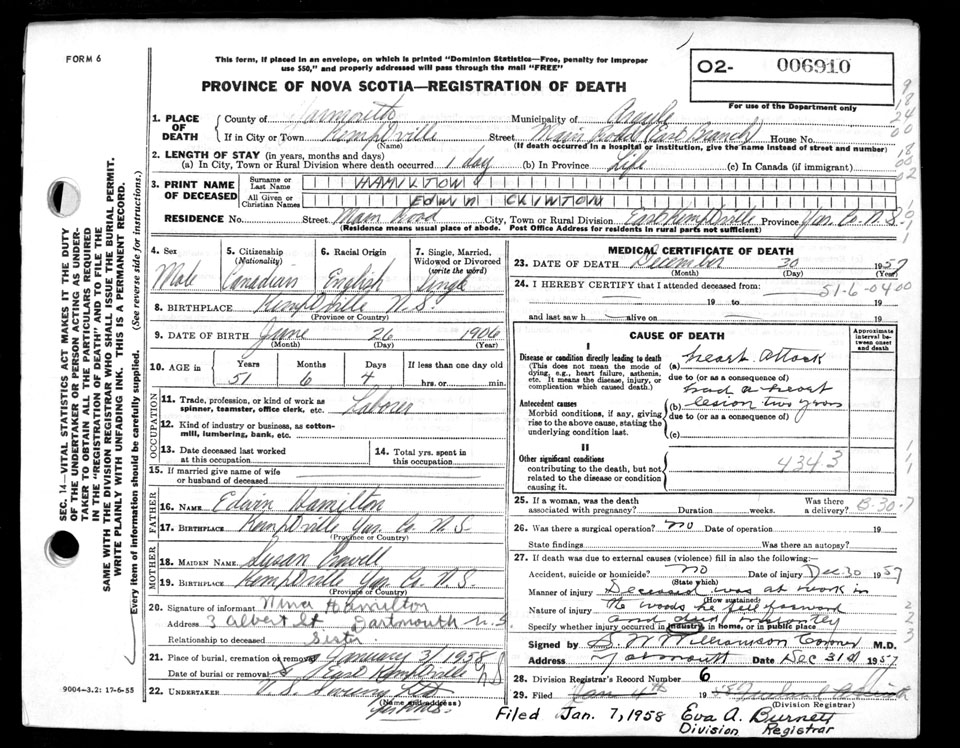 FORM 6
This form, if placed in an envelope, on which is printed "Dominion Statistics—Free, penalty for improper
use $50," and properly addressed will pass through the mail "FREE"
O2- 006910
For use of the Department only
PROVINCE OF NOVA SCOTIA—REGISTRATION OF DEATH
1. PLACE OF DEATH
County of Yarmouth Municipality of Argyle
If in City or Town Kemptville Street Main Road (East Branch) House No.
(Name) (If death occurred in a hospital or institution, give the name instead of street and number)
2. LENGTH OF STAY (in years, months and days)
(a) In City, Town or Rural Division where death occurred 1 day (b) In Province Life (c) In Canada (if immigrant)
3. PRINT NAME OF DECEASED
Surname or Last Name HAMILTON
All Given or Christian Names EDWIN CLINTON
RESIDENCE No. Street Main Road City, Town or Rural Division East Kemptville Province Yar. Co. N.S.
(Residence means usual place of abode. Post Office Address for residents in rural parts not sufficient)
4. Sex Male
5. Citizenship (Nationality) Canadian
6. Racial Origin English
7. Single, Married, Widowed or Divorced (write the word) Single
8. BIRTHPLACE Kemptville N.S.
(Province or Country)
9. DATE OF BIRTH June 26 1906
(Month) (Day) (Year)
10. AGE in Years Months Days If less than one day old
51 6 4 hrs. or min.
OCCUPATION
11. Trade, profession, or kind of work as
spinner, teamster, office clerk, etc. Laborer
12. Kind of industry or business, as cotton-
mill, lumbering, bank, etc.
13. Date deceased last worked
at this occupation
14. Total yrs. spent in
this occupation
15. If married give name of wife
or husband of deceased
FATHER
16. NAME Edwin Hamilton
17. BIRTHPLACE Kemptville Yar. Co. N.S.
(Province or Country)
MOTHER
18. MAIDEN NAME Susan
19. BIRTHPLACE Kemptville Yar. Co. N.S.
(Province or Country)
20. Signature of informant Nina Hamilton
Address 3 Albert St Dartmouth N.S.
Relationship to deceased Sister
21. Place of burial, cremation or removal January 3/1958
Date of burial or removal East Kemptville N S
22. UNDERTAKER V.S. Sweeny Ltd
(Name and address)
9004—3.2: 17-6-55
MEDICAL CERTIFICATE OF DEATH
23. DATE OF DEATH December 30 1957
(Month) (Day) (Year)
24. I HEREBY CERTIFY that I attended deceased from:
51-6-04 00
19 to 19
and last saw h alive on 19
CAUSE OF DEATH
Approximate interval between onset and death
I
Disease or condition directly leading to death
(This does not mean the mode of
dying, e.g., heart failure, asthenia,
etc. It means the disease, injury, or
complication which caused death.)
(a) Heart Attack
due to (or as a consequence of)
had a heart
Antecedent causes
Morbid conditions, if any, giving
rise to the above cause, stating the
underlying condition last.
(b) lesion two years
due to (or as a consequence of)
(c)
II
Other significant conditions
contributing to the death, but not
related to the disease or condition
causing it.
4343
25. If a woman, was the death
associated with pregnancy? Duration weeks. Was there
a delivery? B-30-7
26. Was there a surgical operation? no Date of operation 19
State findings Was there an autopsy?
27. If death was due to external causes (violence) fill in also the following:—
Accident, suicide or homicide? no Date of injury Dec 30 1957
(State which)
Manner of injury Deceased was at work in
(How sustained)
Nature of injury the woods he fell forward
and died instantly
Specify whether injury occurred in industry, in home, or in public place
Signed by S. W. Williamson Coroner M.D.
Address Yarmouth Date Dec 31st 1957
28. Division Registrar's Record Number 6
29. Filed Jan 4th 19
(Division Registrar)
Filed Jan. 7, 1958 Eva A. Burnett
Division Registrar
SEC. 14—VITAL STATISTICS ACT MAKES IT THE DUTY
OF THE UNDERTAKER OR PERSON ACTING AS UNDER-
TAKER TO OBTAIN ALL THE PARTICULARS REQUIRED
IN THE "REGISTRATION OF DEATH" AND TO FILE THE
SAME WITH THE DIVISION REGISTRAR WHO SHALL ISSUE THE BURIAL PERMIT.
WRITE PLAINLY WITH UNFADING INK. THIS IS A PERMANENT RECORD.
Every item of information should be carefully supplied. (See reverse side for instructions.)